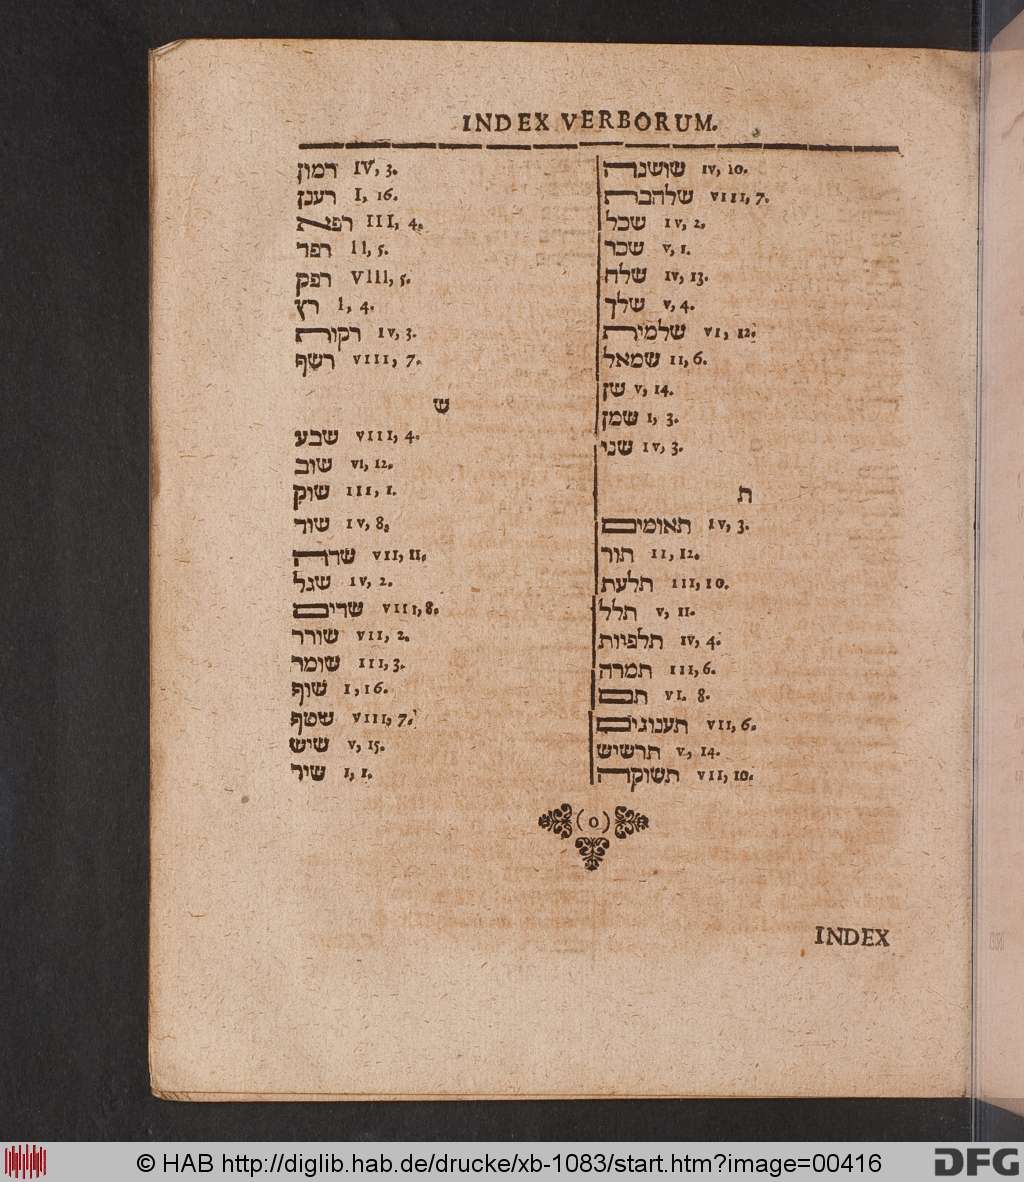 INDEX VERBORUM.
רמון IV, 3.
רענן I, 16.
רפא III, 4.
רפד II, 5.
רפק VIII, 5.
רץ I, 4.
רקות IV, 3.
רשף VIII, 7.
ש
שבע VIII, 4.
שוב VI, 12.
שוק III, 1.
שור IV, 8.
שדה VII, 11.
שגל IV, 2.
שדים VIII, 8.
שורר VII, 2.
שומר III, 3.
שזף I, 16.
שטף VIII, 7.
שיש V, 15.
שיר I, 1.
שושנה IV, 10.
שלהבת VIII, 7.
שכל IV, 2.
שכר V, 1.
שלח IV, 13.
שלך V, 4.
שלמית VI, 12.
שמאל II, 6.
שן V, 14.
שמן I, 3.
שני IV, 3.
ת
תאומים IV, 3.
תור II, 12.
תלעת III, 10.
תלל V, 11.
תלפיות IV, 4.
תמרה III, 6.
תם VI. 8.
תענוגים VII, 6.
תרשיש V, 14.
תשוקה VII, 10.
(o)
INDEX
© HAB http://diglib.hab.de/drucke/xb-1083/start.htm?image=00416
DFG